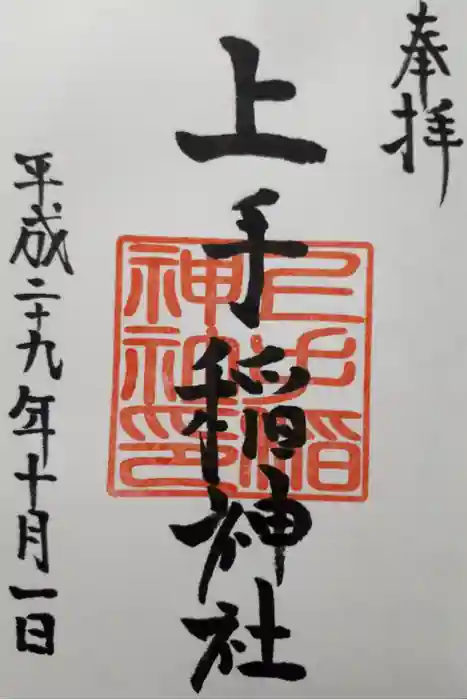 奉拝
上手稲神社
平成二十九年十月一日
上手稲
神社印